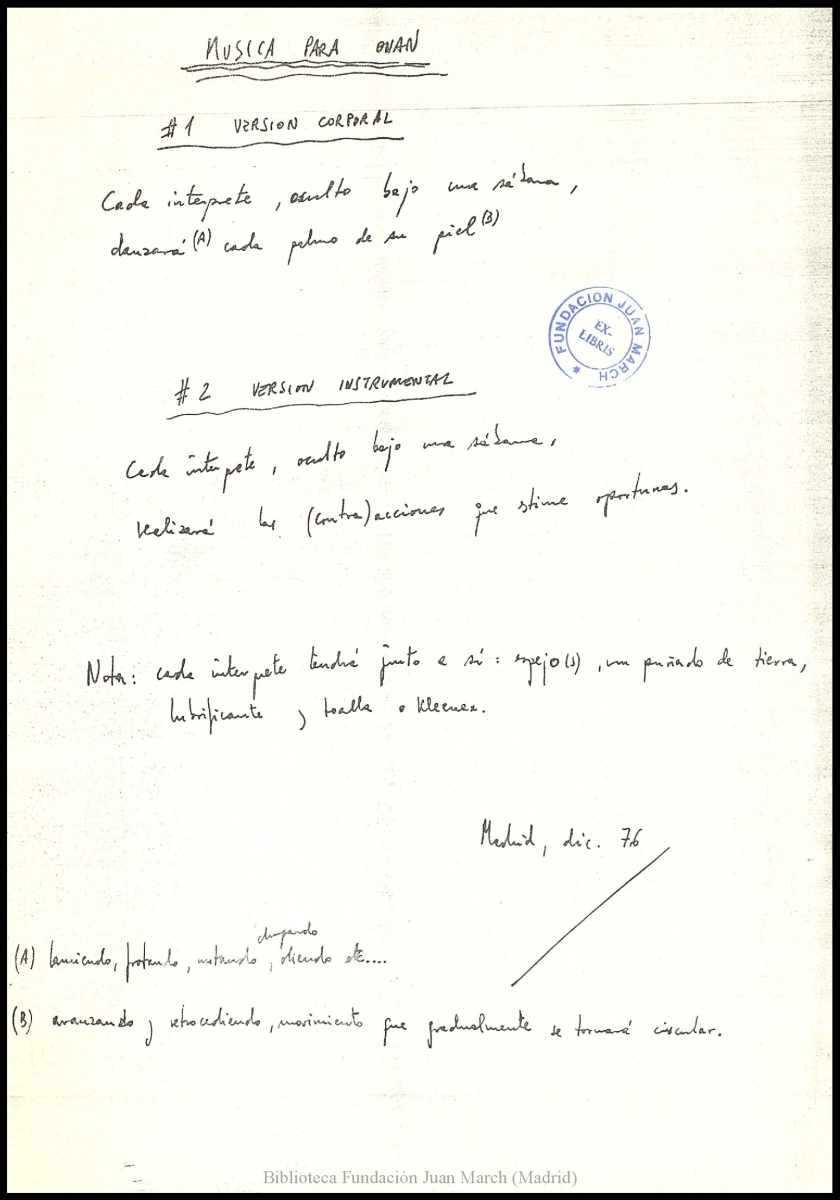 MUSICA PARA ONAN
#1 VERSION CORPORAL
Cada interprete, oculto bajo una sábana,
danzará (A) cada palmo de su piel (B)
FUNDACION JUAN MARCH
EX-
LIBRIS
#2 VERSION INSTRUMENTAL
Cada interpete, oculto bajo una sábana,
realizará las (contra)acciones que stime oportunas.
Nota: cada interpete tendrá junto a sí: espejo(s), un puñado de tierra,
lubrificante y toalla o Kleenex.
Madrid, dic. 76
chupando
(A) lamiendo, frotando, oliendo etc....
(B) avanzando y retrocediendo, movimiento que gradualmente se tornará circular.
Biblioteca Fundación Juan March (Madrid)